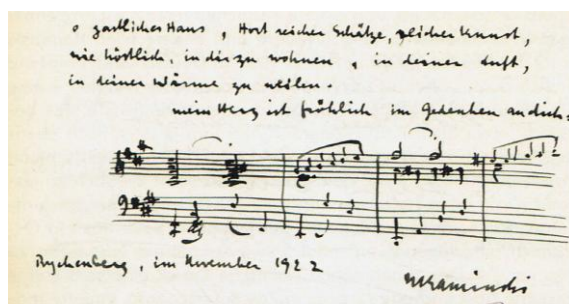 o gastliches Haus, Hort reicher Schätze, reicher Kunst,
wie köstlich, in dir zu wohnen, in deiner Luft,
in deiner Wärme zu weilen.
mein Herz ist fröhlich im Gedenken an dich:
Rychenberg, im November 1922
H Kaminski